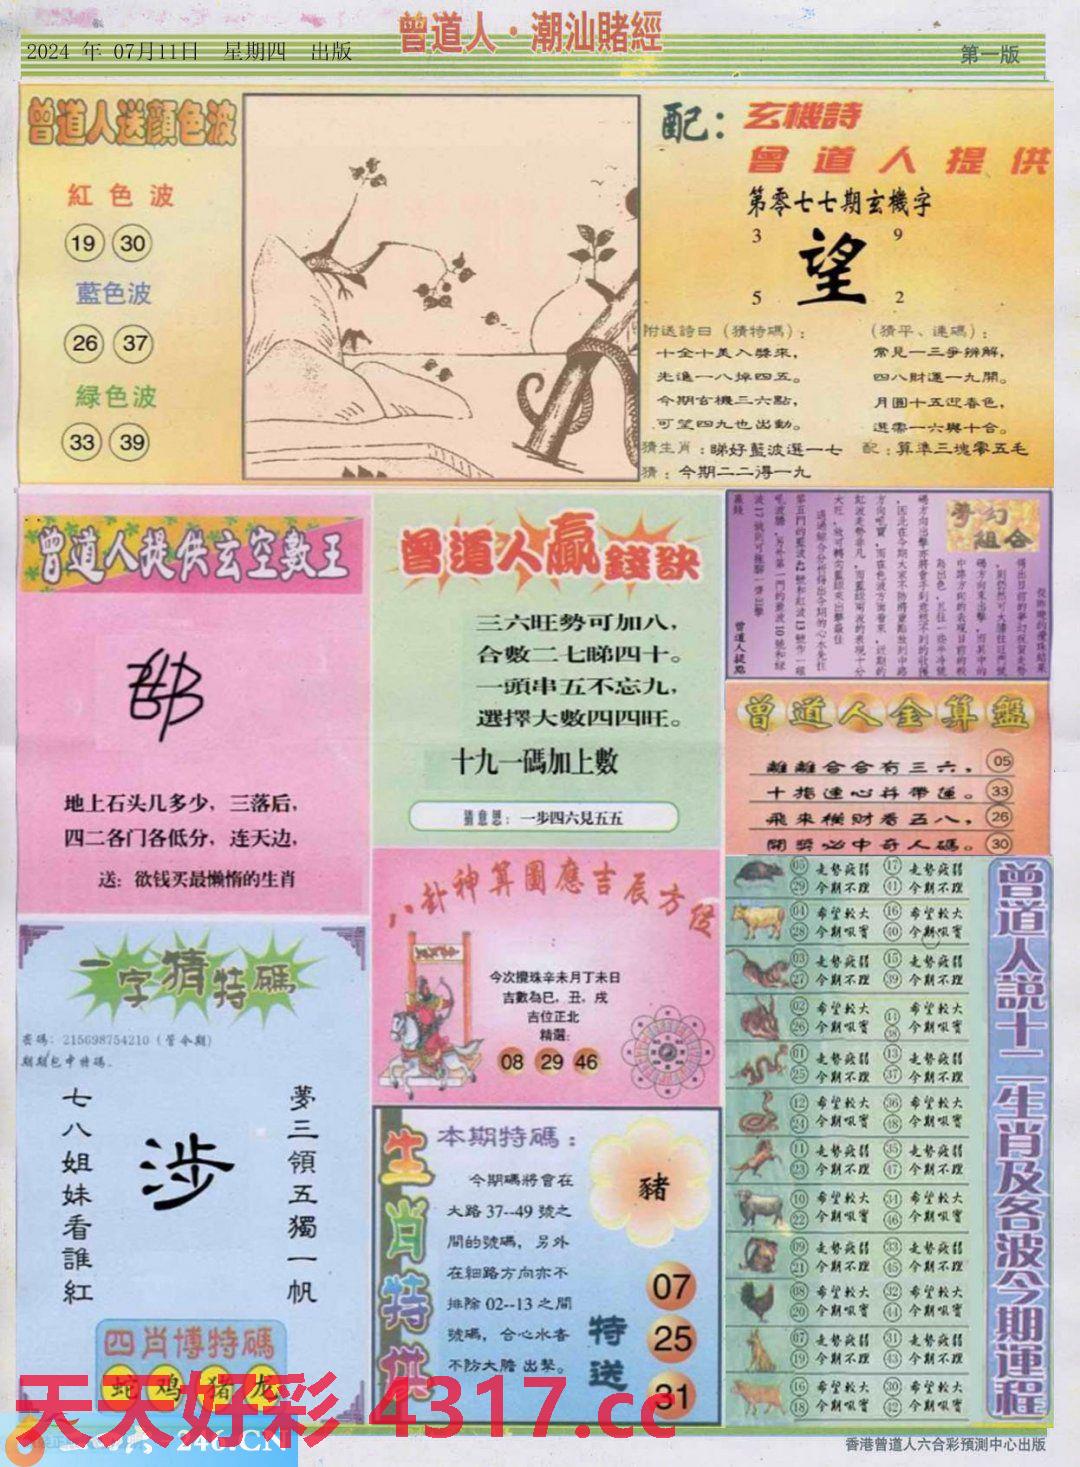 曾道人·潮汕賭經
2024 年 07月11日 星期四 出版
第一版
曾道人送顔色波
紅色波
19 30
藍色波
26 37
緑色波
33 39
配：玄機詩
曾道人提供
第零七七期玄機字
3 9
望
5 2
附送詩曰（猜特碼）：
十全十美入獎來，
先進一八掉四五。
今期玄機三六點，
可望四九也出動。
猜生肖：睇好藍波選一七
猜：今期二二得一九
（猜平、連碼）：
常見一三爭辨解，
四八財運一九開。
月圓十五迎春色，
選需一六與十合。
配：算準三塊零五毛
曾道人提供玄空數王
地上石头几多少，三落后，
四二各门各低分，连天边，
送：欲钱买最懒惰的生肖
曾道人贏錢訣
三六旺勢可加八，
合數二七睇四十。
一頭串五不忘九，
選擇大數四四旺。
十九一碼加上數
猜意思：一步四六見五五
夢幻組合
曾道人提點
曾道人金算盤
離離合合有三六， 05
十指連心并帶運。 33
飛來橫财看五八， 26
開獎必中奇人碼。 30
一字猜特碼
密碼：215698754210（管令期）
期期包中特碼．
夢三領五獨一帆
涉
七八姐妹看誰紅
四肖博特碼
蛇 鸡 猪 龙
八卦神算圖應吉辰方位
今次攪珠辛未月丁未日
吉數為巳，丑，戌
吉位正北
精選:
08 29 46
生肖特供
本期特碼：
今期碼將會在
大路 37--49 號之
間的號碼，另外
在細路方向亦不
排除 02--13 之間
號碼，合心水者
不防大膽 出擊。
豬
特送
07
25
31
曾道人說十二生肖及各波今期運程
05 走勢疲弱 17 走勢疲弱
29 今期不理 41 今期不理
04 希望較大 16 希望較大
28 今期呃寳 40 今期呃寳
03 走勢疲弱 15 走勢疲弱
27 今期不理 39 今期不理
02 希望較大 14 希望較大
26 今期呃寳 38 今期呃寳
01 走勢疲弱 13 走勢疲弱
25 今期不理 37 今期不理
12 希望較大 36 希望較大
24 今期呃寳 48 今期呃寳
11 走勢疲弱 35 走勢疲弱
23 今期不理 47 今期不理
10 希望較大 34 希望較大
22 今期呃寳 46 今期呃寳
09 走勢疲弱 33 走勢疲弱
21 今期不理 45 今期不理
08 希望較大 32 希望較大
20 今期呃寳 44 今期呃寳
07 走勢疲弱 31 走勢疲弱
19 今期不理 43 今期不理
16 希望較大 30 希望較大
18 今期呃寳 42 今期呃寳
天天好彩 4317.cc
246.CN
香港曾道人六合彩預測中心出版